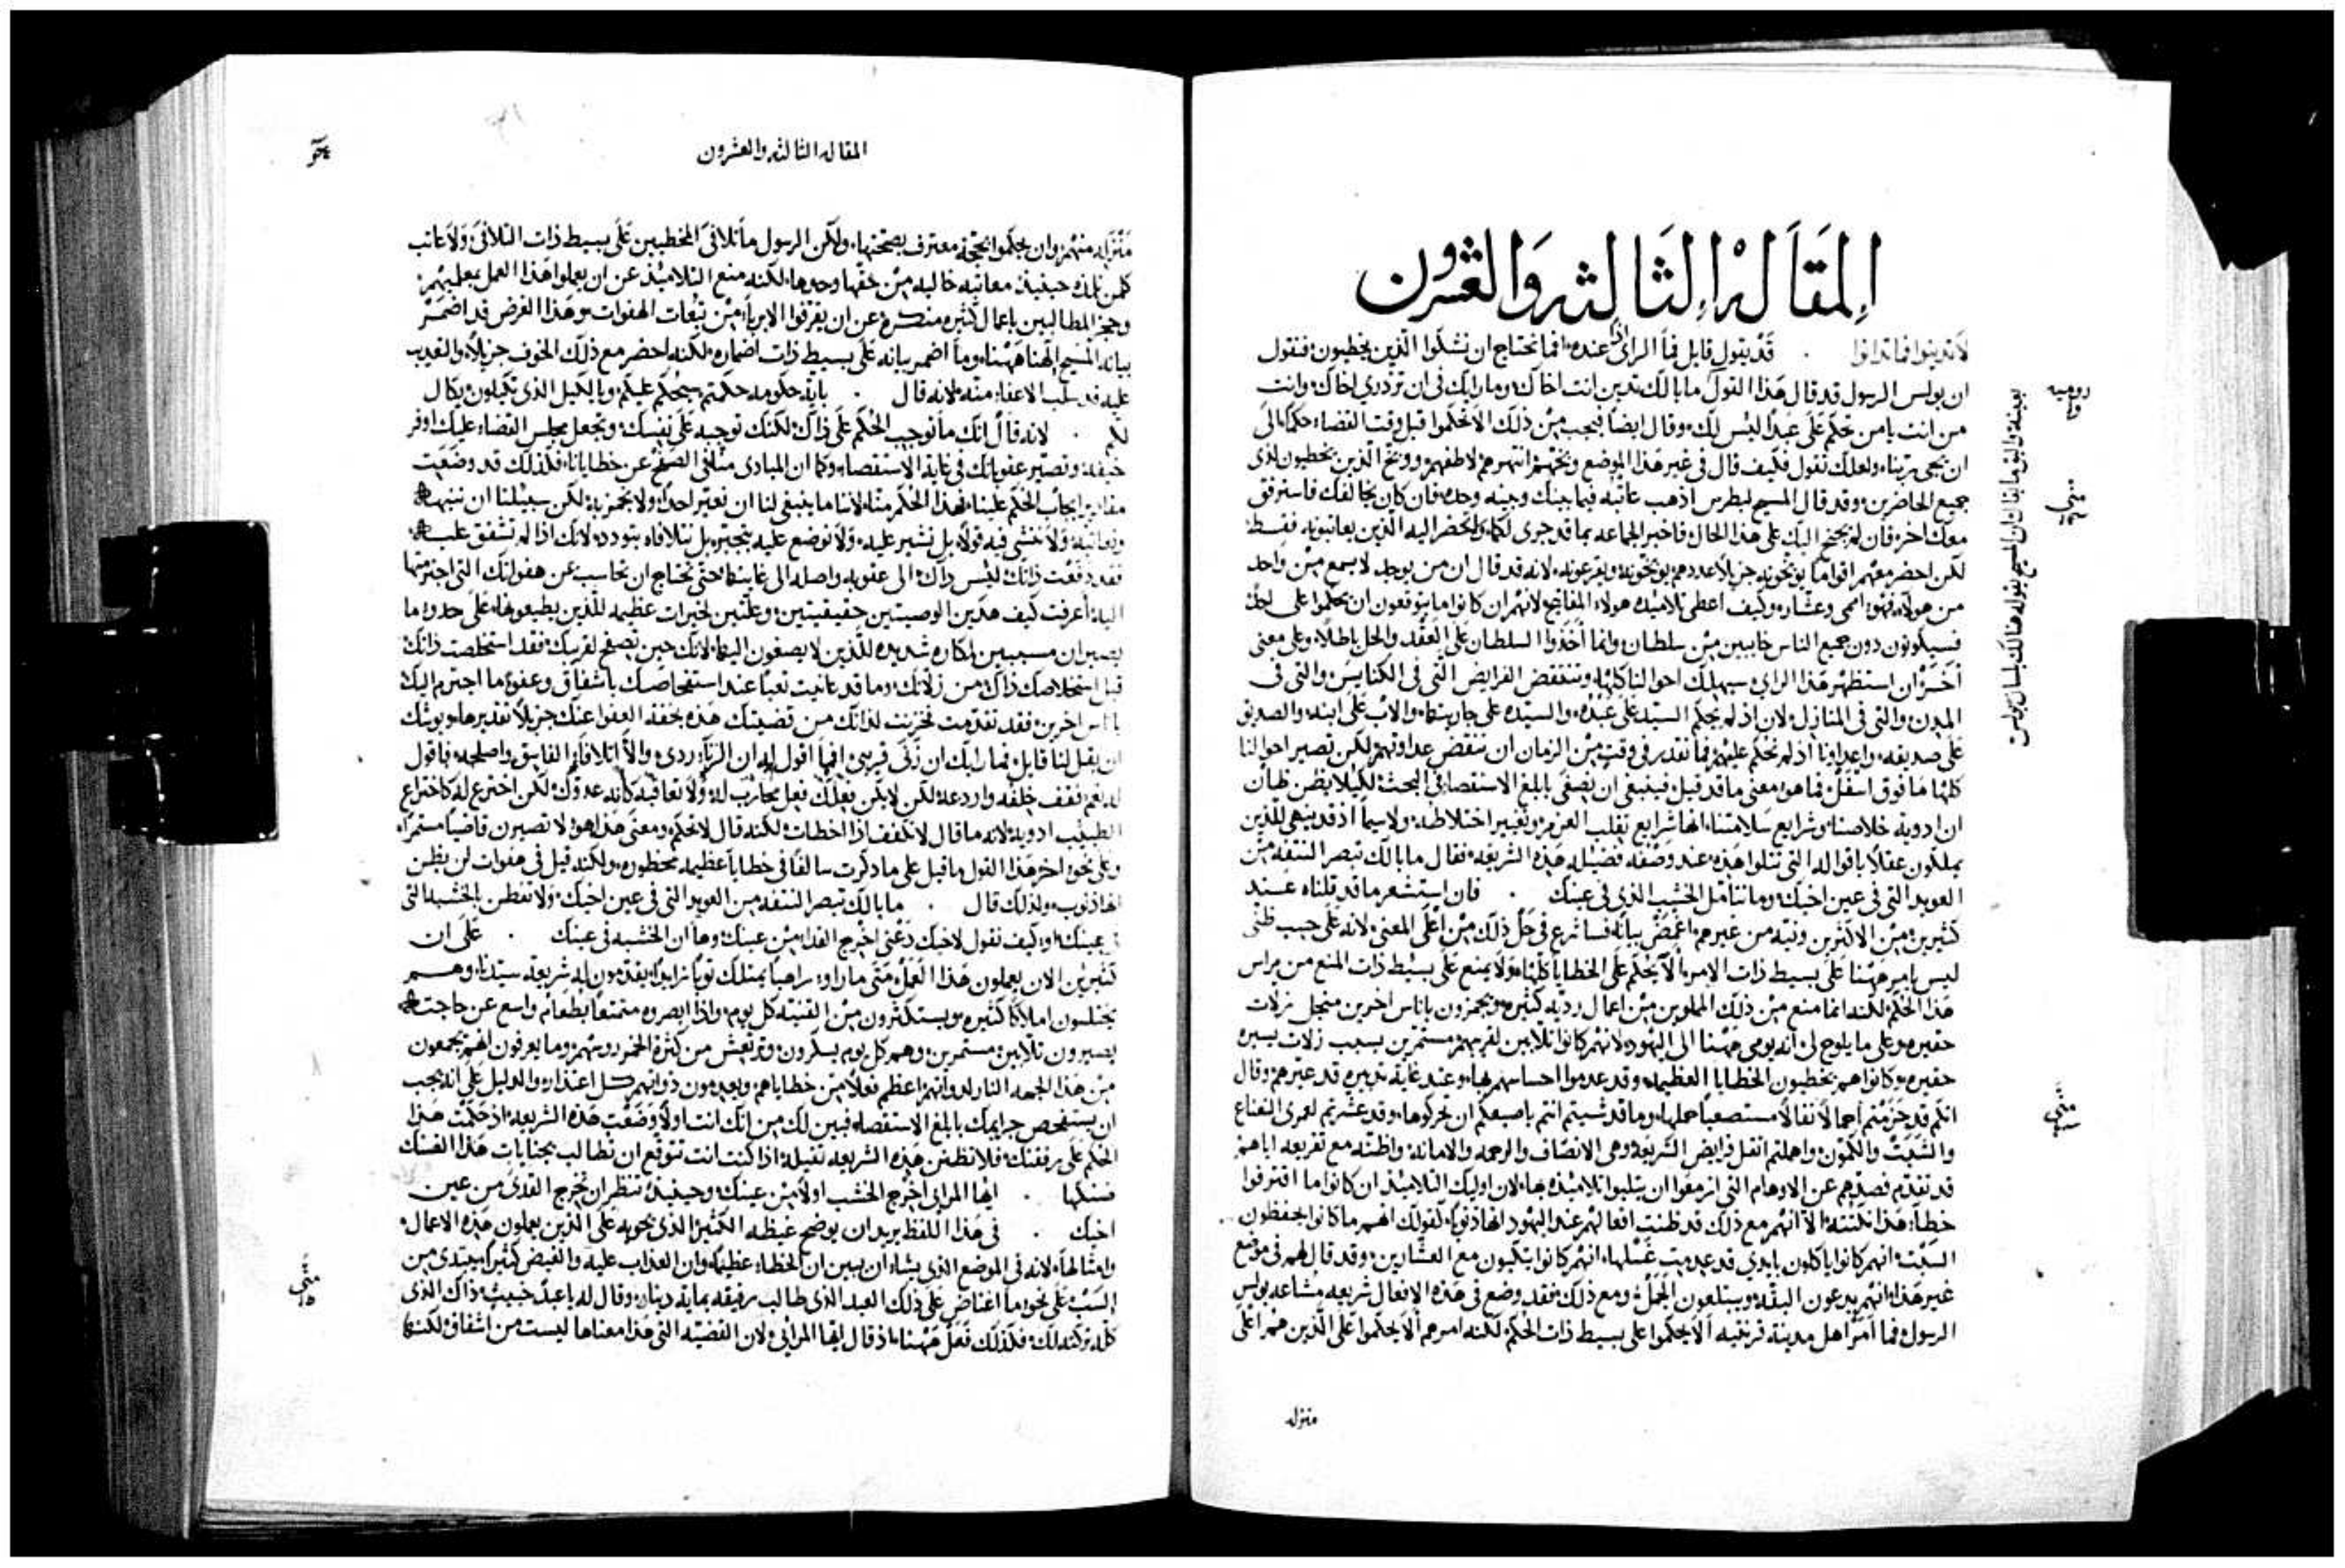 المقاله الثالثه والعشرون
لا تدينوا فما تدانوا . قد يقول قايل فما الراى اذا عنده افما نحتاج ان نشكوا الذين يخطيون فنقول
ان بولس الرسول قد قال هذا القول ما بالك تدين انت اخاك وما رايك فى ان تزدري اخاك وانت
من انت يا من تحكم على عبدًا ليس لك وقال ايضًا فيجب من ذلك الا تحكموا قبل وقت القضاء حكما الى
ان يجى ربنا ولعلك تقول فكيف قال فى غير هذا الموضع وبختهم انتهرهم لاطفهم ووبخ الذين يخطيون لدى
جميع الحاضرين وقد قال المسيح لبطرس اذهب عاتبه فيما بينك وبينه وحده فان كان يخالفك فاسترفق
معك اخر فان لم يجنح اليك على هذا الحال فاخبر الجماعه بما قد جرى لكما ولتحضر اليه الذين يعاتبونه فقسط
لكن احضر معهم اقوامًا يوبخونه جزيلًا عددهم يوبخونه ويقرعونه لانه قد قال ان من يوجد لا يسمع من واحد
من هولاء فهو امى وعشار وكيف اعطى تلاميذه هولاء المفاتيح لانهم ان كانوا ما يتوقعون ان يحكموا على احد
فسيكونون دون جميع الناس خايبين من سلطان وانما أخذوا السلطان على العقد والحل باطلًا وعلى معنى
اخر ان استظهر هذا الراي سيهلك احوالنا كلها وتنتقض الفرايض التى فى الكنايس والتى فى
المدن والتى فى المنازل لان اذ لم يحكم السيد على عبده والسيده على جاريتها والاب على ابنه والصديق
على صديقه واعداونا اذ لم نحكم عليهم فما نقدر فى وقت من الزمان ان ننقض عداوتهم لكن تصير احوالنا
كلها ما فوق اسفل فما هو معنى ما قد قيل فينبغى ان نصغى بابلغ الاستقصا فى البحث لكيلا يظن ظان
ان ادوية خلاصنا وشرايع سلامتنا انها شرايع تقلب العزم وتغيير اختلاطه ولا سيما اذ قد ينبهى للذين
يملكون عقلًا باقواله التى تتلوا هذه عند وصفه فضيله هذه الشريعه فقال ما بالك تبصر النتفه من
العويد التى فى عين اخيك وما تتامل الخشب الذى فى عينك . فان استشعر ما قد قلناه عند
كثيرين من الاكثرين ونيته من غيرهم اغمض بيانه فساشرع فى حل ذلك من اعلى المعنى لانه على حسب ظنى
ليس يامر ههنا على بسيط ذات الامر الا يحكم على الخطايا كلها ولا يمنع على بسيط ذات المنع من يراس
هذا الحكم لكنه انما منع من ذلك المملوين من اعمال رديه كثيره ويجمزون باناس اخرين من اجل زلات
حقيره وعلى ما يلوح لى انه يومى ههنا الى اليهود لانهم كانوا ثلابين لقريبهم مستمرين بسبب زلات يسيره
حقيره وكانوا هم يخطيون الخطايا العظيمه وقد عدموا احساسهم بها وعند غاية تدبيره قد عيرهم وقال
انكم قد حزمتم احمالًا ثقالًا مستصعبًا حملها وما قد شيتم انتم باصبعكم ان تحركوها وقد عشرتم لعمرى النعناع
والشبت والكمون واهملتم اثقل فرايض الشريعه وهى الانصاف والرحمه والامانه واظنه مع تقريعه اياهم
قد تقدم فصدهم عن الاوهام التى ازمعوا ان يثلبوا تلاميذه بها لان اوليك التلاميذ ان كانوا ما اقترفوا
خطاء هذا نكتته الا انهم مع ذلك قد ظنت افعالهم عند اليهود انها ذنوبًا لقولك انهم ما كانوا يحفظون
السبت انهم كانوا ياكلون بايدي قد عدمت غسلها انهم كانوا يتكيون مع العشارين وقد قال لهم فى موضع
غير هذا انهم يبدعون البقه ويبتلعون الجمل ومع ذلك فقد وضع فى هذه الافعال شريعه مشاعه بولس
الرسول فما امر اهل مدينة قرنثيه الا يحكموا على بسيط ذات الحكم لكنه امرهم الا يحكموا على الذين هم اعلى
منزله
روميه
متى
بعينه واليق ما يقال ان المسيح يقوله هنالك بلسان بولس
متى
المقاله الثالثه والعشرون
منزله منهم وان يحكموا بحجة معترف بصحتها ولكن الرسول ما تلافى المخطيين على بسيط ذات التلافى ولا عاتب
كلمن تلاه حينيذ معاتبه خاليه من حقها وحدها لكنه منع التلاميذ عن ان يعملوا هذا العمل بمعلميهم
وحجز المطالبين باعمال كثيره منكره عن ان يقرفوا الابرياء من تبعات الهفوات وهذا الغرض قد اضمر
بيانه المسيح الهنا ههنا وما اضمر بيانه على بسيط ذات اضماره لكنه احضر مع ذلك الخوف جزيلًا والتعذيب
عليه قد سلب الاعفاء منه لانه قال . باية حكومه حكمتم سيحكم عليكم وبالكيل الذى تكيلون يكال
لكم . لانه قال انك ما توجب الحكم على ذاك لكنك توجبه على نفسك وتجعل مجلس القضاء عليك اوفر
خيفه وتصير عقوباتك فى غاية الاستقصاء وكما ان المبادى منا لفى الصفح عن خطايانا فكذلك قد وضعت
مقادير ايجاب الحكم علينا بهذا الحكم منا لاننا ما ينبغى لنا ان نعير احدًا ولا نجمز به لكن سبيلنا ان ننبهه
ونعاتبه ولا نخشى فيه قولًا بل نشير عليه ولا نوضع عليه بتجبر بل نتلافاه بتودد لانك اذا لم تشفق عليه
فقد دفعت ذاتك ليس ذاك الى عقوبه واصله الى غايتها حتى تحتاج ان تحاسب عن هفواتك التى اجترمتها
اليه اعرفت كيف هذين الوصيتين حقيقيتين وعلتين لخيرات عظيمه للذين يطيعونها على حدود ما
يصيران مسببين لمكاره شديده للذين لا يصغون اليهما لانك حين تصفح لقريبك فقد استخلصت ذاتك
قبل استخلاصك ذاك من زلاتك وما قد عانيت تعبًا عند استفحاصك باشفاق وعفو ما اجترم اليك
باناس اخرين فقد تقدمت فخزنت لذاتك من قضيتك هذه بحقه العفوا عنك جزيلًا تقديرها وبوثك
ان يقل لنا قايل فما رايك ان زنى قريبى افما اقول له ان الزناء ردى والا اتلافا الفاسق واصلحه فاقول
له نعم ثقف خلقه واردعه لكن لا يكن فعلك فعل محارب له ولا تعاقبه كانه عدوك لكن اخترع له كاختراع
الطبيب ادويه لانه ما قال لا تكفف اذا اخطات لكنه قال لا تحكم ومعنى هذا هو لا تصيرن قاضيًا مستمراه
وعلى نحو اخر هذا القول ما قيل على ما ذكرت سالفًا فى خطايا عظيمه محظوره ولكنه قيل فى هفوات لن يظن
انها ذنوب ولذلك قال . ما بالك تبصر النتفه من العويد التى فى عين اخيك ولا تفطن بالخشبه التى
فى عينك او كيف تقول لاخيك دعنى اخرج القذاء من عينك وها ان الخشبه فى عينك . على ان
كثيرين الان يعملون هذا العمل متى ما راوا راهبًا يمتلك ثوبًا زايدًا يقدمون له شريعه سيدنا وهم
يختلسون املاكًا كثيره ويستكثرون من القنيه كل يوم واذا ابصروه متمتعًا بطعام واسع عن حاجته
يصيرون ثلابين مستمرين وهم كل يوم يسكرون وترتعش من كثرة الخمر روسهم وما يعرفون انهم يجمعون
من هذا الجهه النار لذواتهم اعظم فعلًا من خطاياهم ويعدمون ذواتهم كل اعتذار والدليل على انه يجب
ان يستفحص جرايمك بابلغ الاستقصاء فبين لك من انك انت اولًا وضعت هذه الشريعه اذ حكمت هذا
الحكم على رفقتك فلا تظنن هذه الشريعه ثقيله اذا كنت انت تتوقع ان تطالب بجنايات هذا الفسك
مسلكها . ايها المراى اخرج الخشب اولًا من عينك وحينيذ تنظر ان تخرج القذى من عين
اخيك . فى هذا اللفظ يريد ان يوضح غيظه الكثير الذى يحويه على الذين يعملون هذه الاعمال
وامثالها لانه فى الموضع الذى يشاء ان يبين ان الخطاء عظيمًا وان العذاب عليه والغيظ كثيرًا يبتدى من
السب على نحو ما اغتاض على ذلك العبد الذى طالب رفيقه بماية دينار وقال له يا عبدًا خبيث ذاك الذى
كله تركته لك فكذلك فعل ههنا اذ قال ايها المرايى لان القضيه التى هذا معناها ليست من اشفاق لكنها
متى